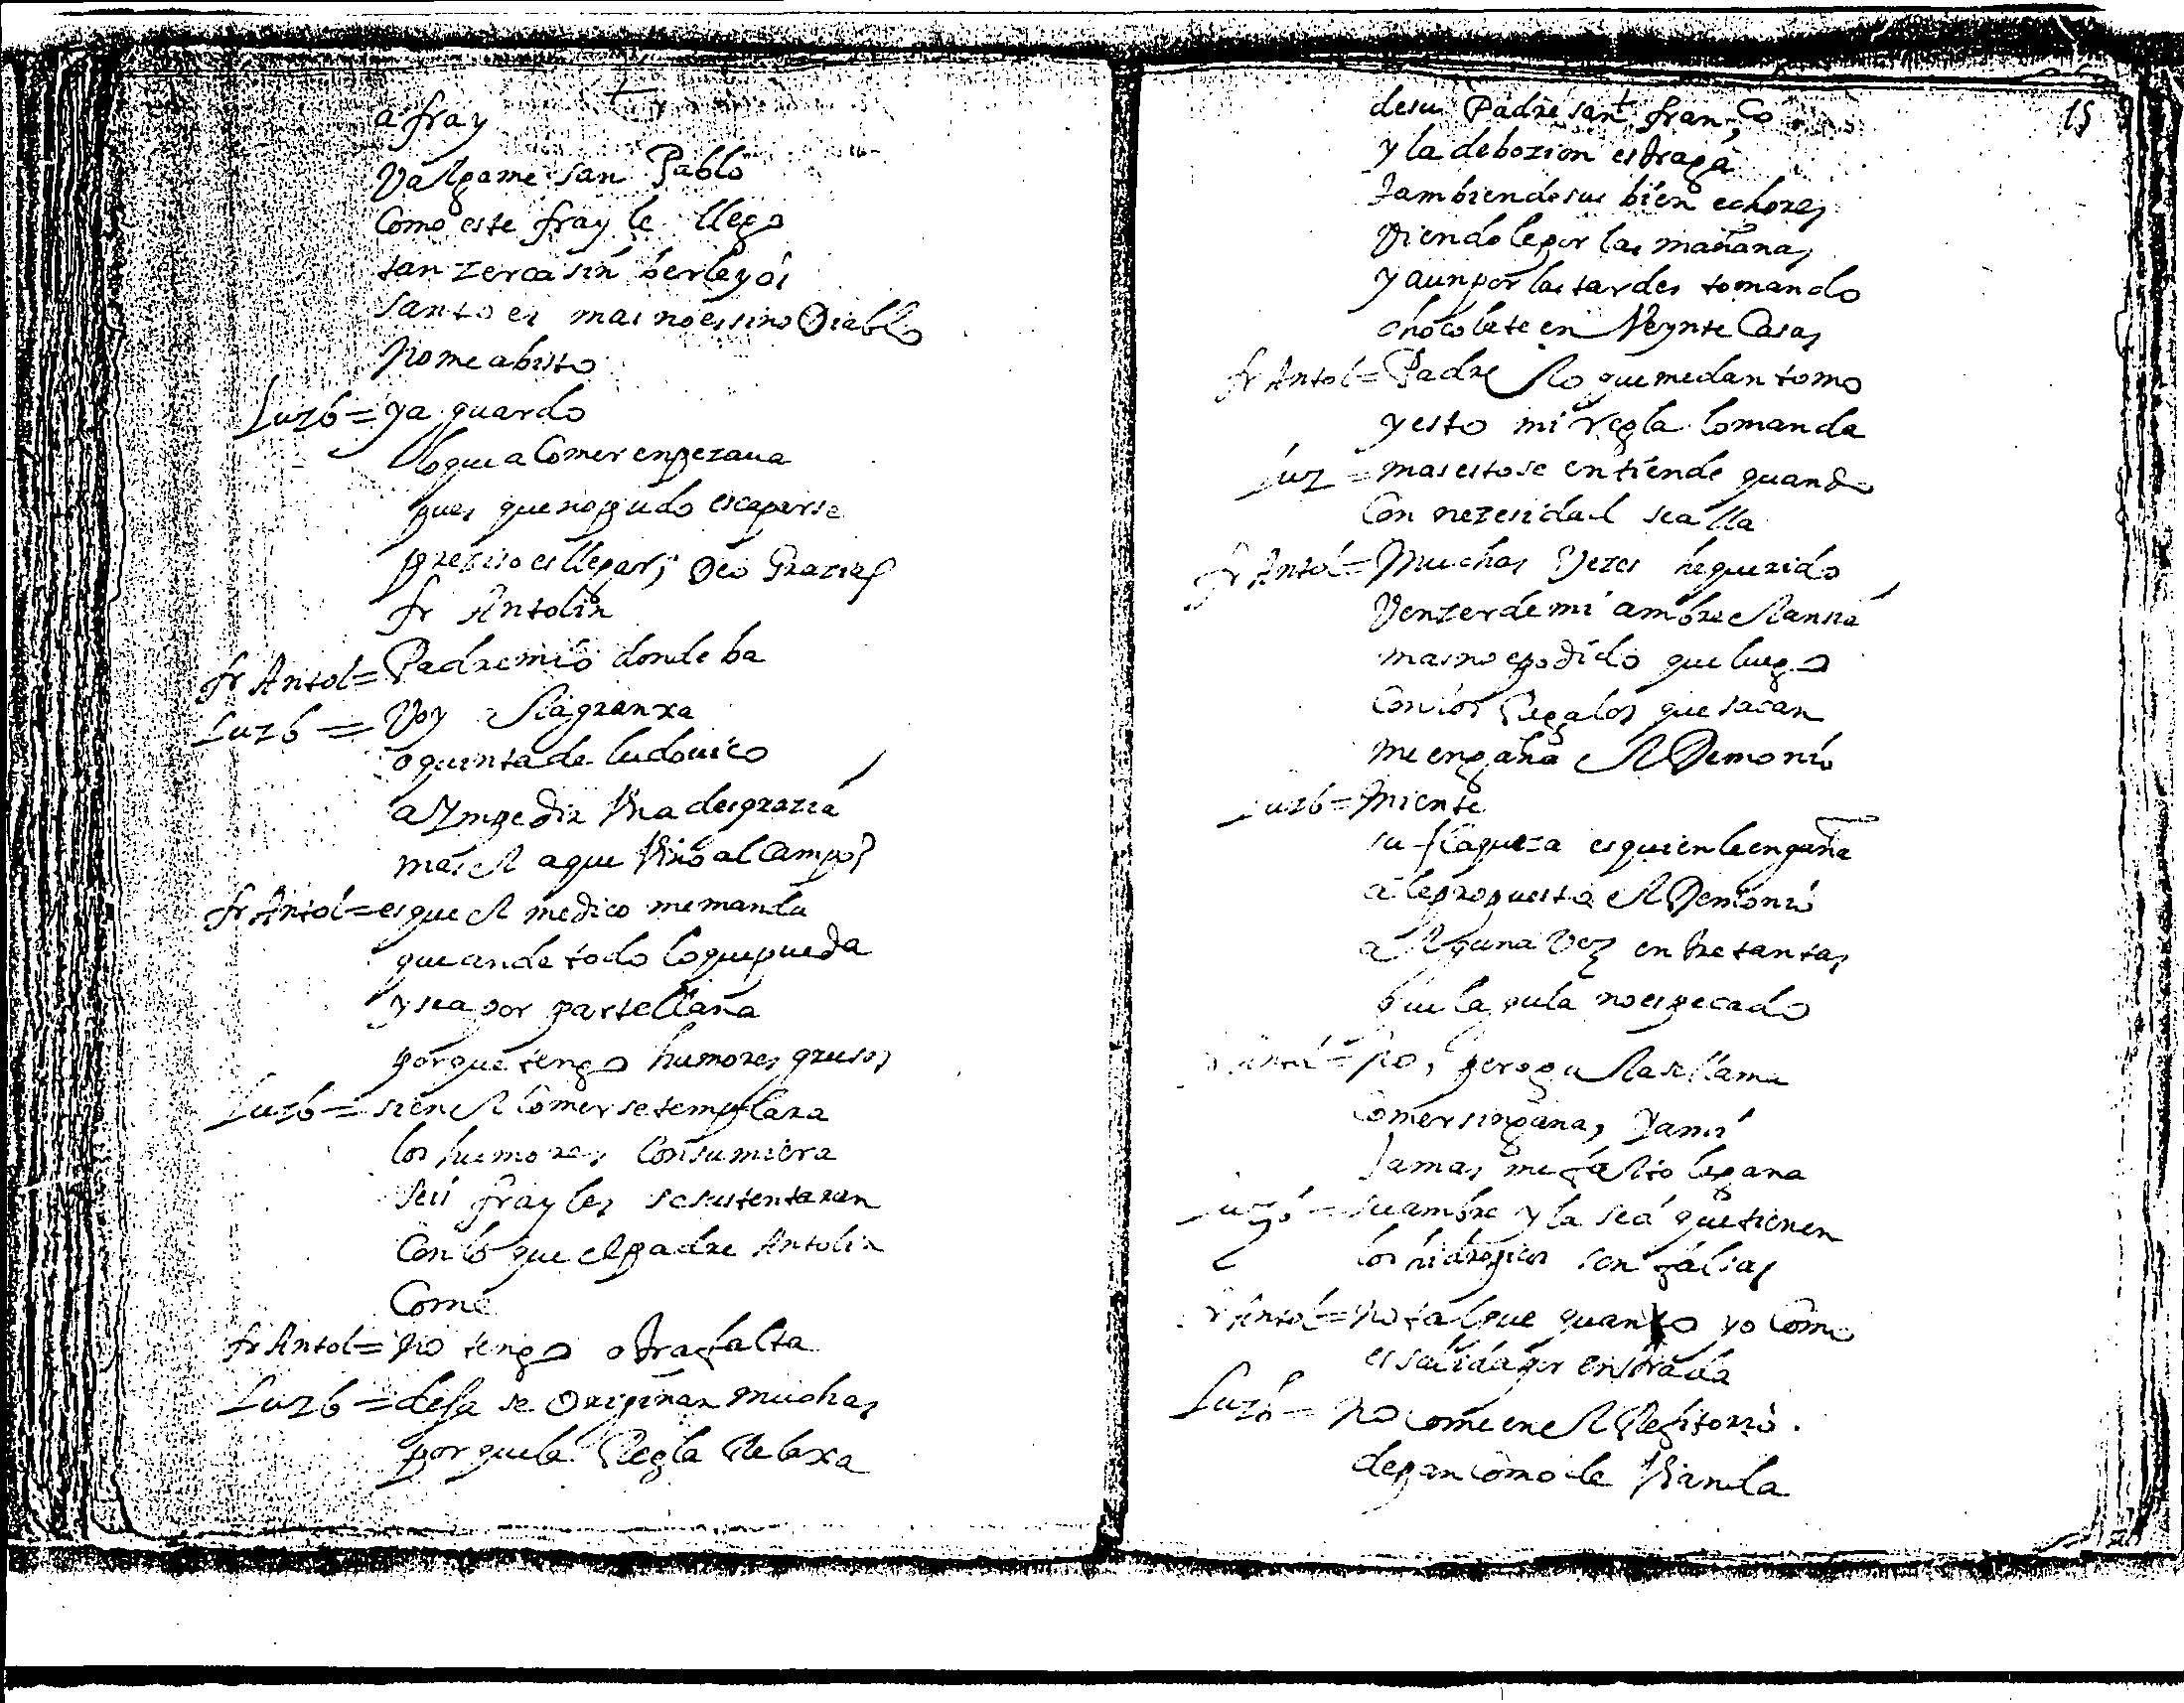 a fray
Valgame san Pablo
Como este fray le llego
tan zerca sin berle yo
santo es mas no es sino Diablo
No me a bisto
Luzb = ya guardo
lo que a Comer enpezaua
pues que no pudo escaparse
prezizo es llegar, Deo Grazias
fr Antolin
fr Antol = Padre mio donde ba
Luzb = Voy a la granxa
o quinta de ludouico
a Ympedir Vna desgrazia
mas el a que Vino al Campo?
fr Antol = es que el medico me manda
que ande todo lo que pueda
y sea por parte llana
porque tengo humores gruesos
Luzb = si en el Comer se templara
los humores Consumiera
seis frayles se sustentaran
Con lo que el padre Antolin
Come
fr Antol = No tengo otra falta
Luzb = desa se Originan muchas
por que la Regla Relaxa
15
de su Padre san fran,co
y la debozion estraga
tambien de sus bien echores
Viendole por las mañanas
y aun por las tardes tomando
chocolate en Veynte Casas
fr Antol = Padre lo que me dan tomo
y esto mi regla lo manda
Luz = mas esto se entiende quando
Con nezesidad se alla
fr Antol = Muchas Vezes he querido
Venzer de mi ambre el ansia
mas no e podido que luego
Con los Regalos que sacan
me engaña el Demonio
Luzb = Miente
su flaqueza es quien le engaña
a le propuesto el Demonio
alguna Vez entre tantas
que la gula no es pecado
fr Antol = No, pero gula se llama
Comer sin gana, y a mi
Jamas me falto la gana
Luzb = su ambre y la sed que tienen
los hidropicos son falsas
fr Antol = No tal que quanto yo Como
es salida por entrada
Luzb = No Come en el Refitorio
de pan Como de Vianda